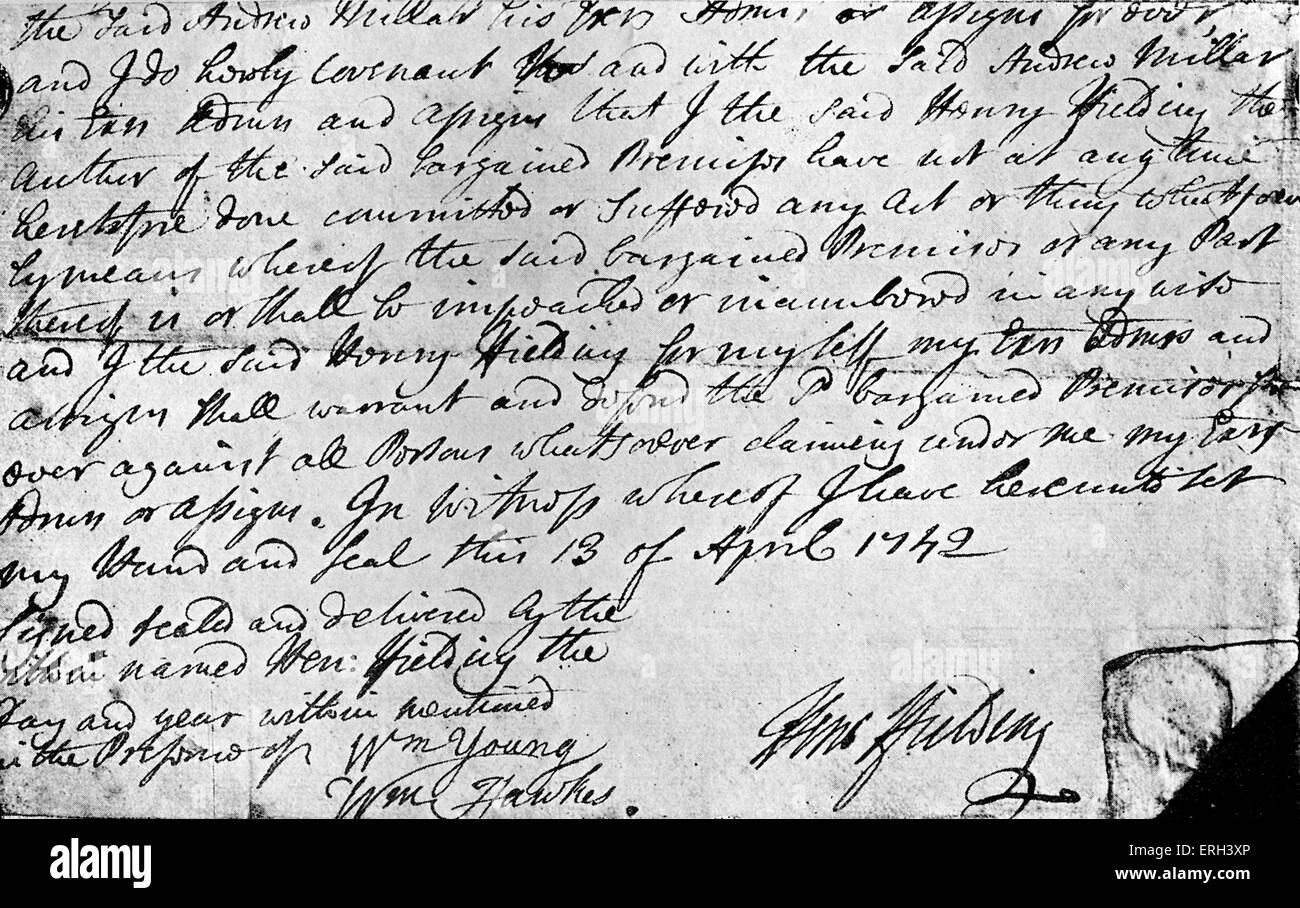 the said Andrew Millar his Exrs Admrs or assigns for ever,
and I do hereby covenant and with the said Andrew Millar
his Exrs Admrs and assigns that I the said Henry Fielding the
Author of the said bargained Premises have not at any time
heretofore done committed or suffered any Act or thing whatsoever
by means whereof the said bargained Premises or any Part
thereof is or shall be impeached or incumbered in any wise
and I the said Henry Fielding for my self my Exrs Admrs and
assigns shall warrant and defend the sd bargained Premises for
ever against all Persons whatsoever claiming under me my Exrs
Admrs or assigns. In witness whereof I have hereunto set
my Hand and Seal this 13 of April 1742
Signed sealed and delivered by the
within named Hen: Fielding the
Day and year within mentioned
in the Presence of Wm Young
Wm Hawkes.
Henry Fielding
alamy
Image ID: ERH3XP
www.alamy.com